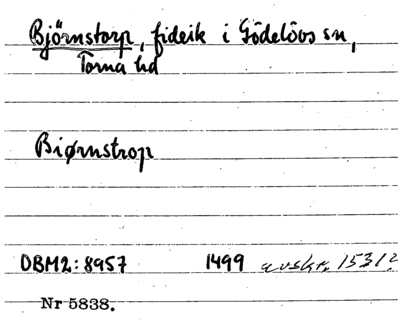 Björnstorp, fideik i Gödelövs sn,
Torna hd
Biørnstrop
DBM2:8957 1499 avskr. 1531?
Nr 5838.